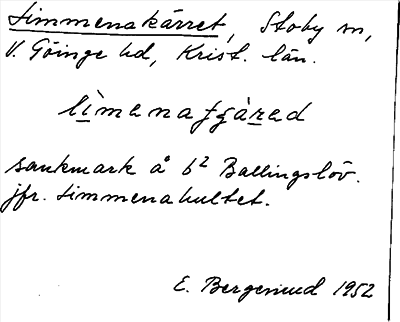 Limmenakärret, Stoby sn,
V. Göinge hd, Krist. län.
sankmark å b² Ballingslöv.
jfr. Limmenahultet.
E. Bergemud 1952